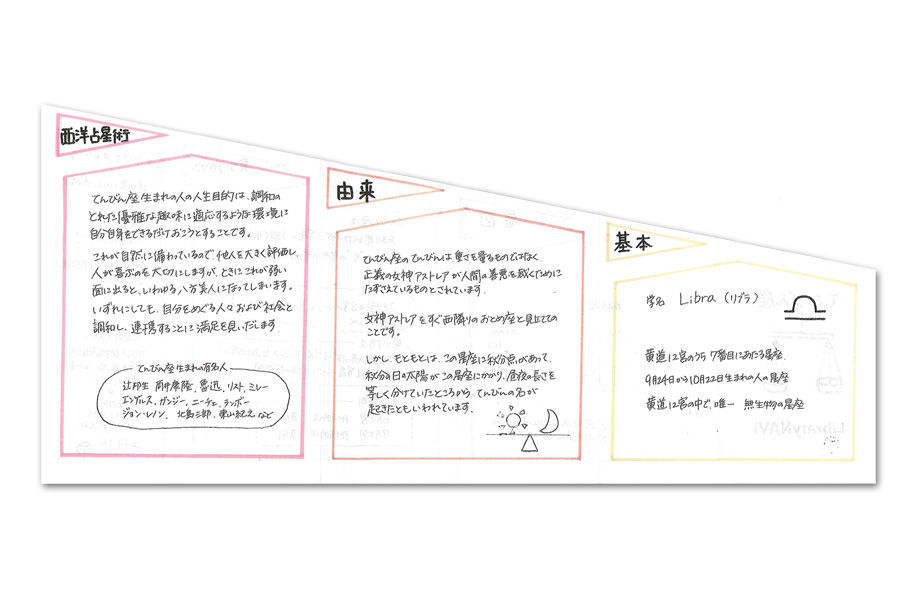 西洋占星術
てんびん座生まれの人の人生目的は、調和の
とれた優雅な趣味に適応するような環境に
自分自身をできるだけおこうとすることです。
これが自然に備わっているので、他人を大きく評価し、
人が喜ぶのを大切にしますが、ときにこれが弱い
面に出ると、いわゆる八方美人になってしまいます。
いずれにしても、自分をめぐる人々および社会と
調和し、連携することに満足を見いだします
てんびん座生まれの有名人
辻邦生 筒井康隆 魯迅 リスト ミレー
エンゲルス ガンジー ニーチェ ランボー
ジョン・レノン 北島三郎 東山紀之 など
由来
てんびん座のてんびんは重さを量るものではなく、
正義の女神アストレアが人間の善悪を裁くために
たずさえているものとされています。
女神アストレアをすぐ西隣りのおとめ座と見立てての
ことです。
しかし、もともとは、この星座に秋分点があって、
秋分の日の太陽がこの星座にかかり、昼夜の長さを
等しく分けていたところから、てんびんの名が
起きたともいわれています。
基本
学名 Libra (リブラ)
黄道12宮のうち 7番目にあたる星座、
9月24日から10月22日生まれの人の星座
黄道12宮の中で、唯一 無生物の星座